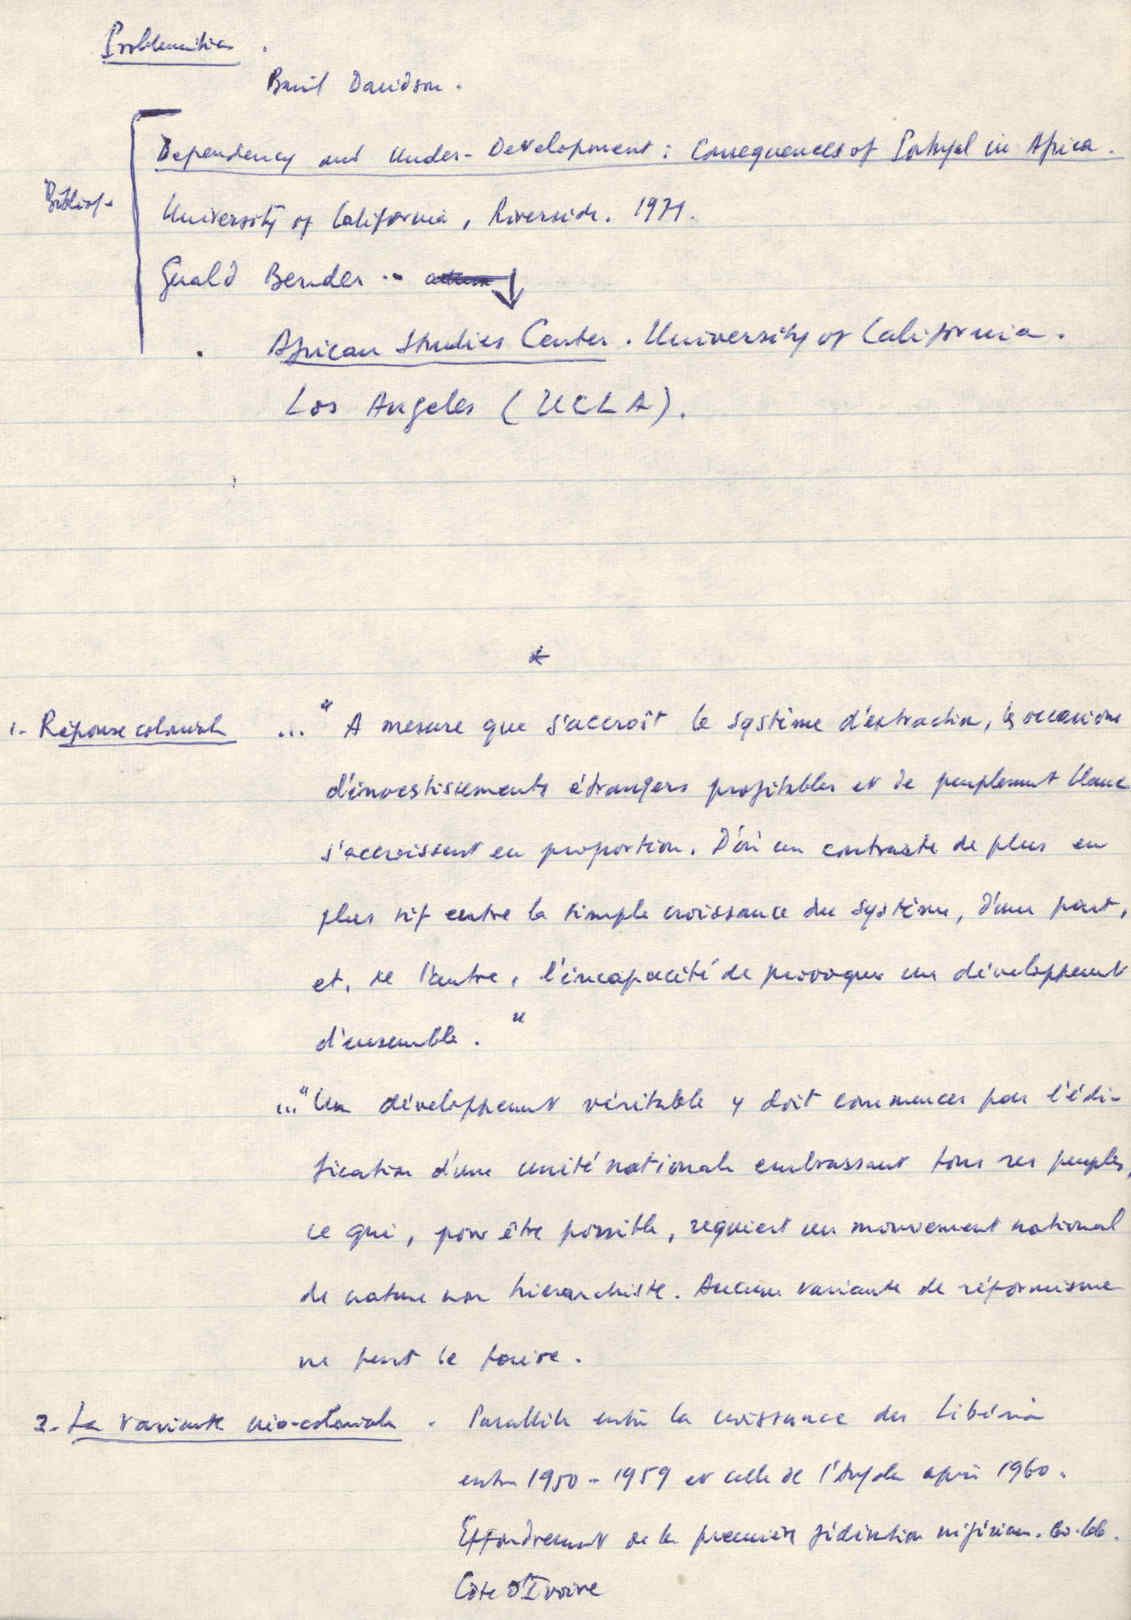 Problématica.
Basil Davidson.
Bibliog-
Dependency and Under-Development: Consequences of Portugal in Africa.
University of California, Riverside. 1971.
Gerald Bender ..
African Studies Center. University of California.
Los Angeles (UCLA).
*
1. Réponse coloniale ... "A mesure que s'accroît le système d'extraction, les occasions
d'investissements étrangers profitables et de peuplement blanc
s'accroissent en proportion. D'où un contraste de plus en
plus vif entre la simple croissance du système, d'une part,
et, de l'autre, l'incapacité de provoquer un développement
d'ensemble."
..."Un développement véritable y doit commencer par l'édi-
fication d'une unité nationale embrassant tous ses peuples,
ce qui, pour être possible, requiert un mouvement national
de nature non hiérarchiste. Aucune variante de réformisme
ne peut le faire.
2- La variante néo-coloniale. Parallèle entre la croissance du Libéria
entre 1950-1959 et celle de l'Angola après 1960.
Effondrement de la première fédération nigérian. 60-66.
Côte d'Ivoire